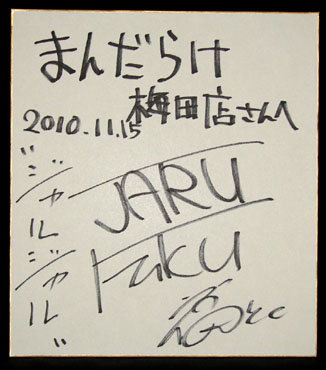 まんだらけ
梅田店さんへ
2010.11.15
"ジャルジャル"
JARU
FuKu